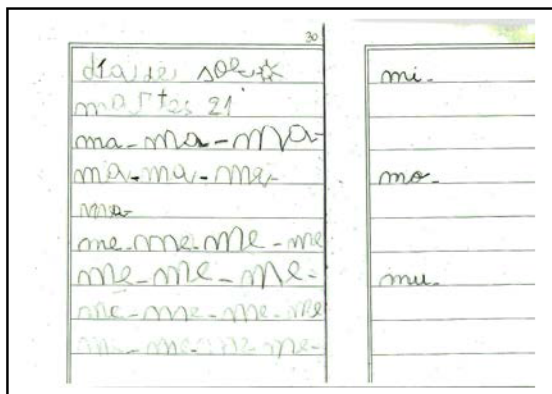 30
día de sol
martes 21
ma-ma-ma-
ma-ma-ma-
ma-
me-me-me-me
me-me-me-
me-me-me-me
me-me-me-me-
mi-
mo-
mu-